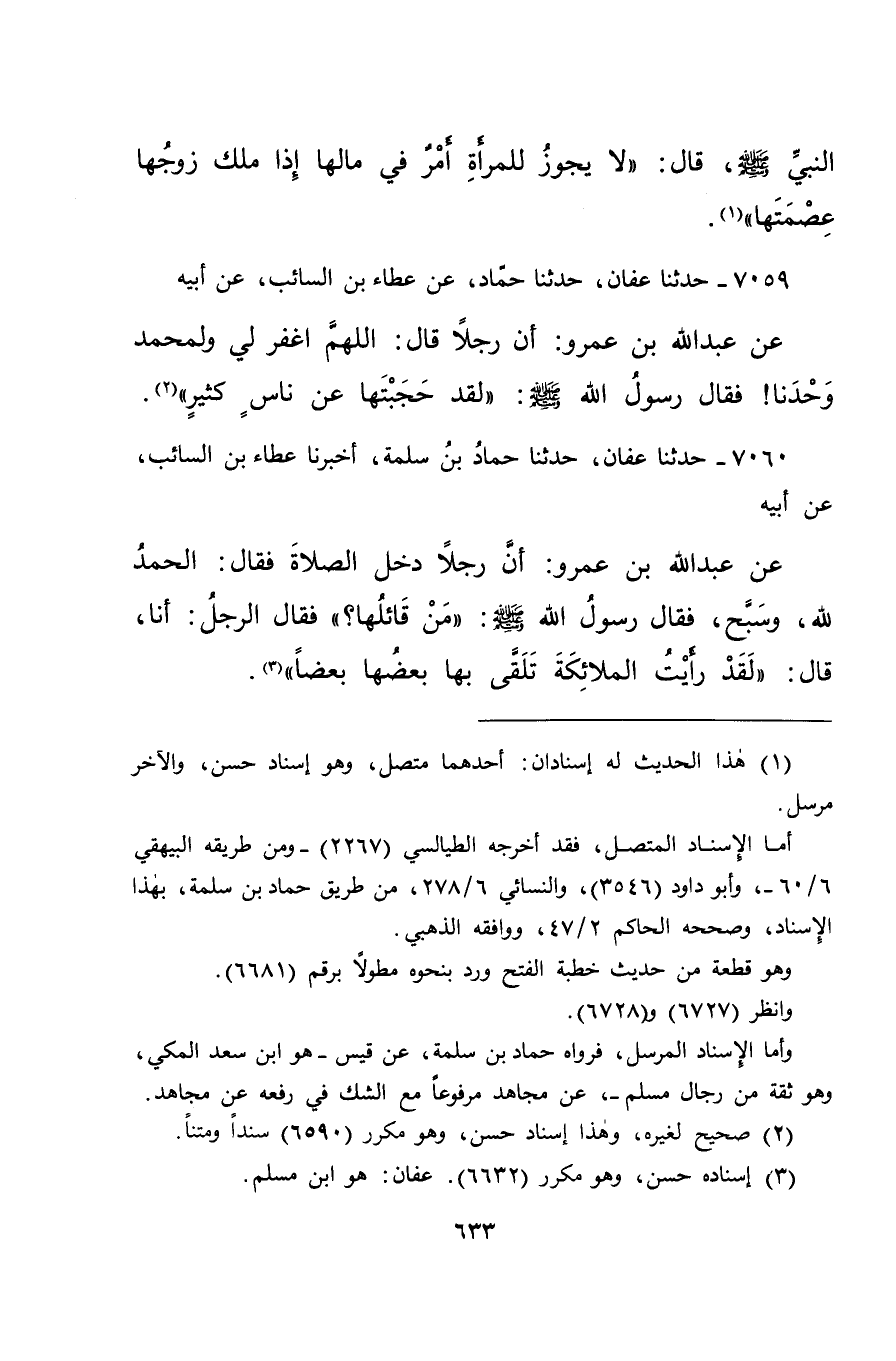 النبيِّ ﷺ، قال: «لا يجوزُ للمرأَةِ أَمْرٌ في مالها إِذا ملك زوجُها
عِصْمَتَها»(١).
٧٠٥٩ ـ حدثنا عفان، حدثنا حمّاد، عن عطاء بن السائب، عن أبيه
عن عبدالله بن عمرو: أن رجلًا قال: اللهمَّ اغفر لي ولمحمد
وَحْدَنا! فقال رسولُ الله ﷺ: «لقد حَجَبْتَها عن ناسٍ كثيرٍ»(٢).
٧٠٦٠ ـ حدثنا عفان، حدثنا حمادُ بنُ سلمة، أخبرنا عطاء بن السائب،
عن أبيه
عن عبدالله بن عمرو: أنَّ رجلًا دخل الصلاةَ فقال: الحمدُ
لله، وسَبَّح، فقال رسولُ الله ﷺ: «مَنْ قَائلُها؟» فقال الرجلُ: أنا،
قال: «لَقَدْ رأَيْتُ الملائِكَةَ تَلَقَّى بها بعضُها بعضاً»(٣).
(١) هٰذا الحديث له إسنادان: أحدهما متصل، وهو إسناد حسن، والآخر
مرسل.
أما الإسناد المتصل، فقد أخرجه الطيالسي (٢٢٦٧) ـ ومن طريقه البيهقي
٦٠/٦ ـ، وأبو داود (٣٥٤٦)، والنسائي ٢٧٨/٦، من طريق حماد بن سلمة، بهٰذا
الإسناد، وصححه الحاكم ٤٧/٢، ووافقه الذهبي.
وهو قطعة من حديث خطبة الفتح ورد بنحوه مطولًا برقم (٦٦٨١).
وانظر (٦٧٢٧) و(٦٧٢٨).
وأما الإسناد المرسل، فرواه حماد بن سلمة، عن قيس ـ هو ابن سعد المكي،
وهو ثقة من رجال مسلم ـ، عن مجاهد مرفوعاً مع الشك في رفعه عن مجاهد.
(٢) صحيح لغيره، وهٰذا إسناد حسن، وهو مكرر (٦٥٩٠) سنداً ومتناً.
(٣) إسناده حسن، وهو مكرر (٦٦٣٢). عفان: هو ابن مسلم.
٦٣٣